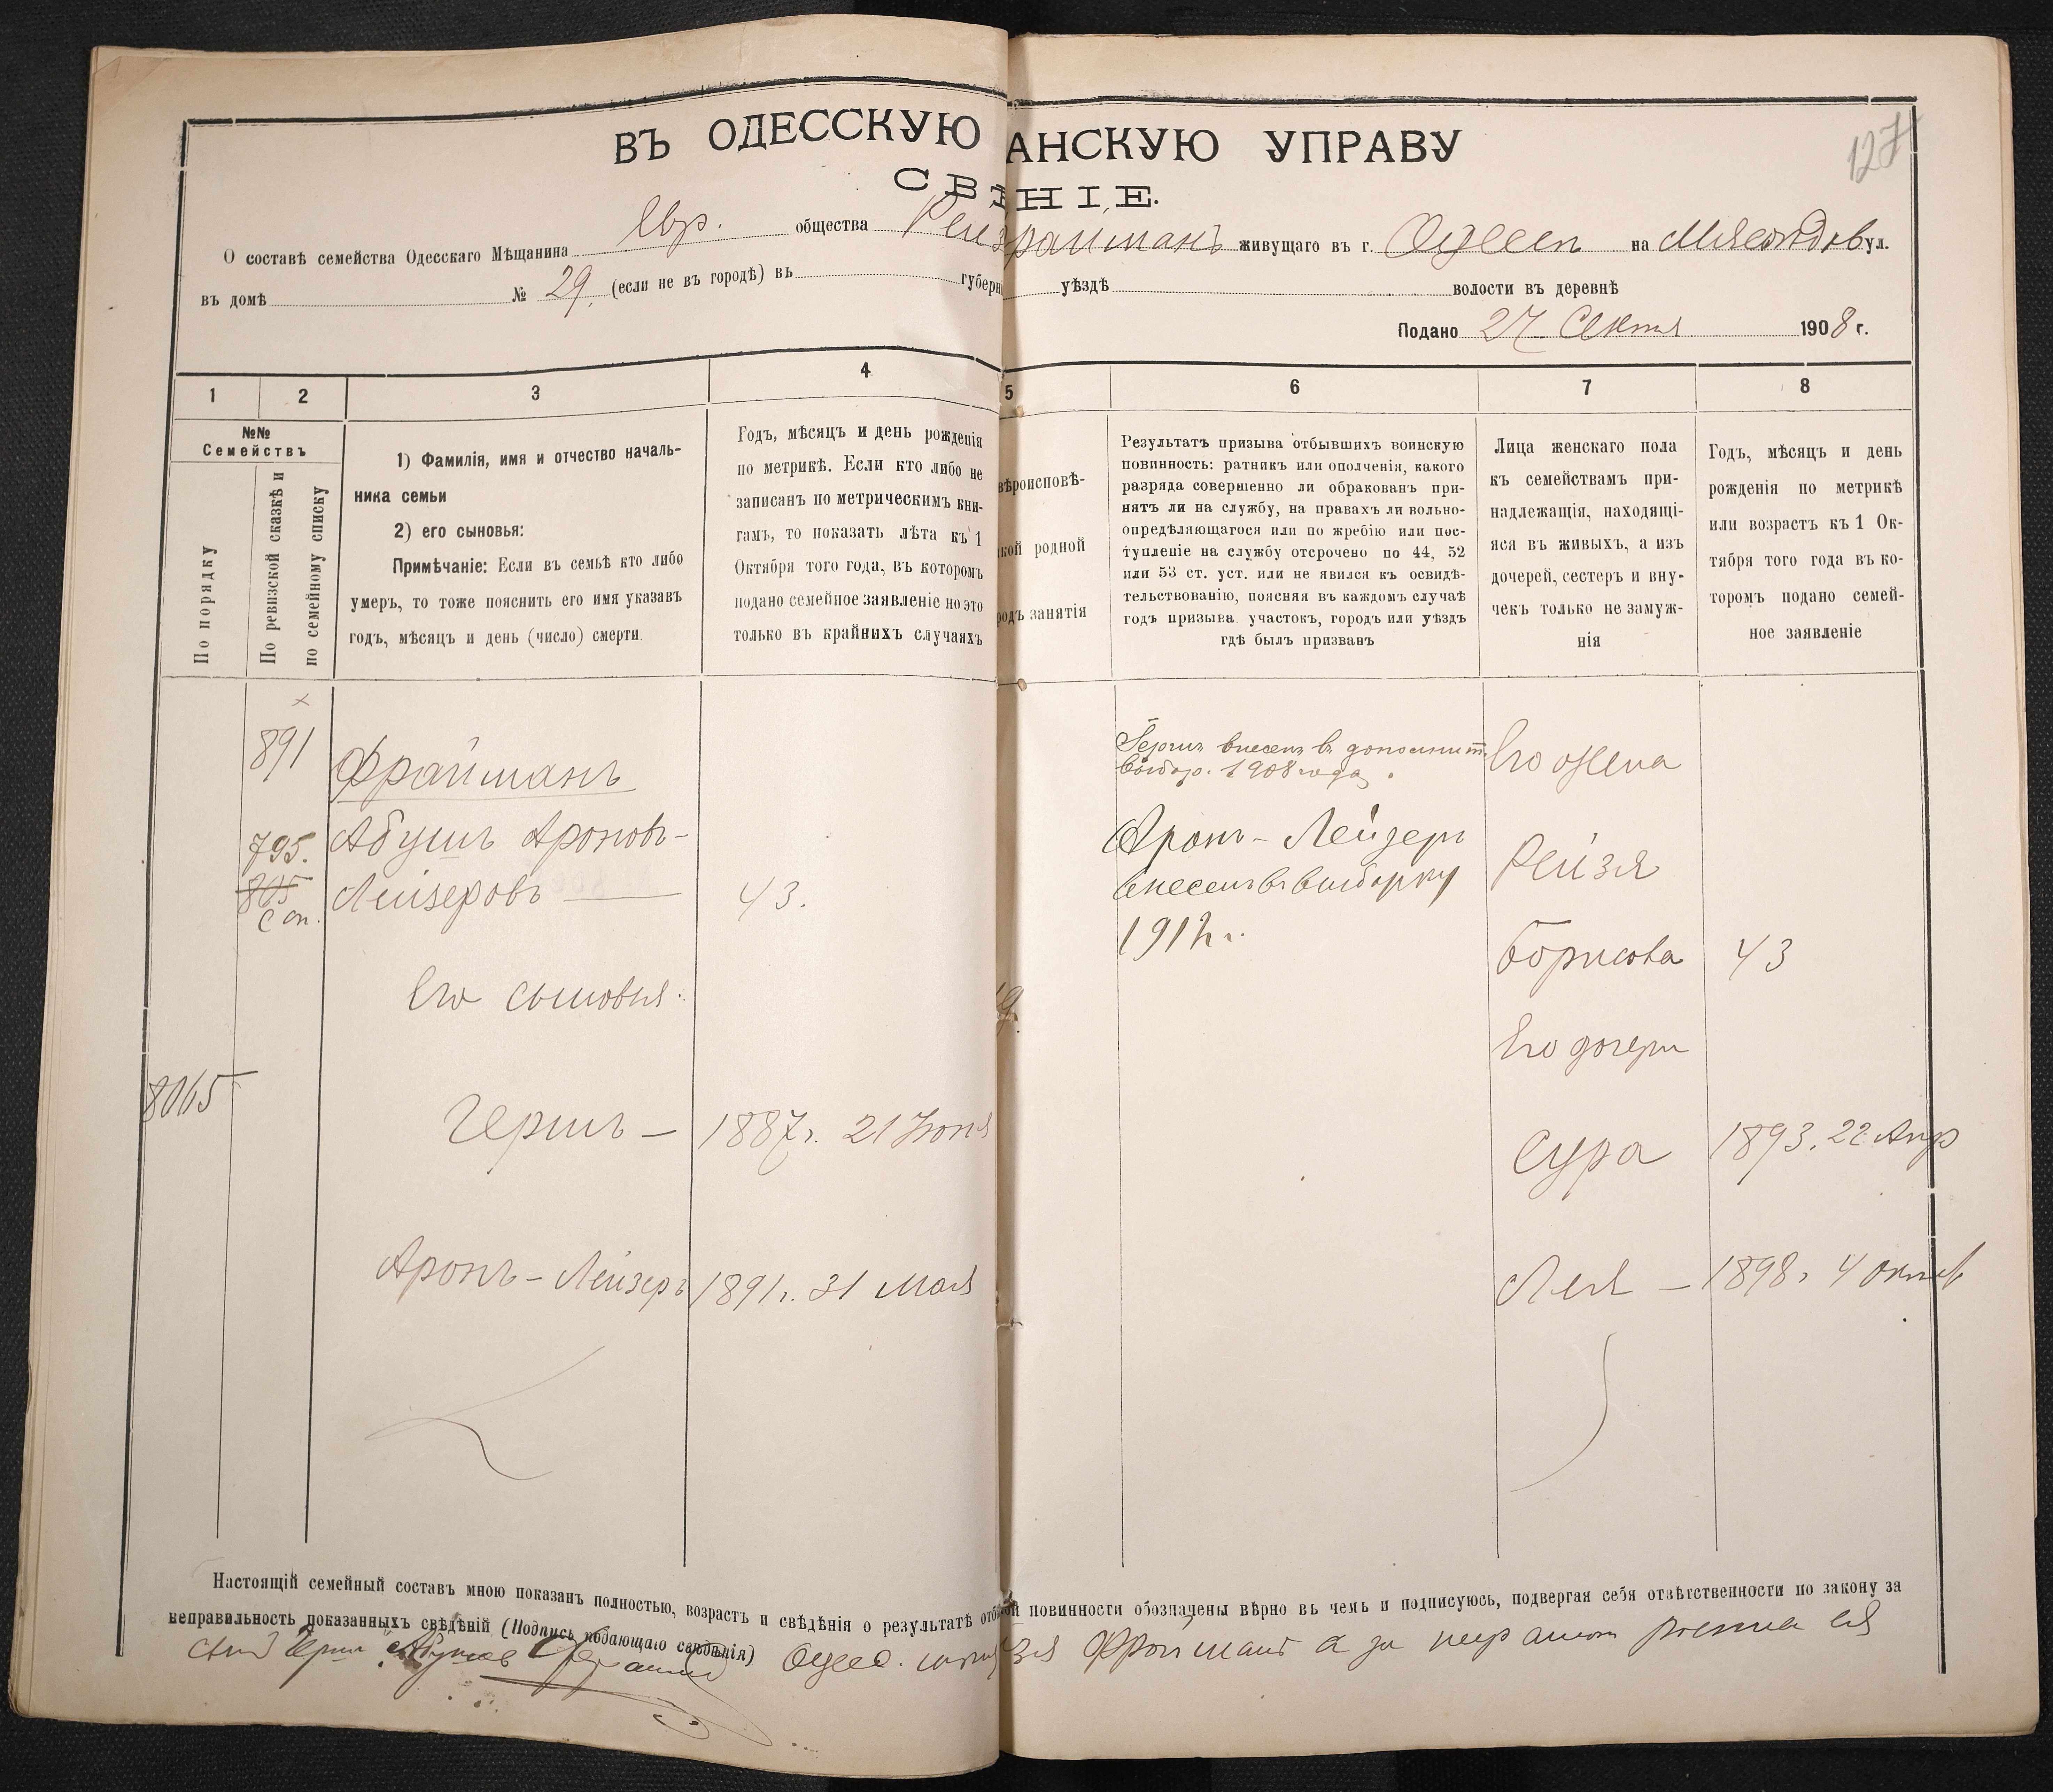 127
ВЪ ОДЕССКУЮ АНСКУЮ УПРАВУ
СВ НІЕ.
О составѣ семейства Одесскаго Мѣщанина Евр. общества Рейз Файманъ живущаго въ г. Одессѣ на Мясоѣдов ул.
въ домѣ № 29, (если не въ городѣ) въ губерн уѣздѣ волости въ деревнѣ
Подано 27 Сентя 1908 г.
1 2 3 4 5 6 7 8
№№
Семействъ
По порядку
По ревизской сказкѣ и
по семейному списку
1) Фамилія, имя и отчество началь-
ника семьи
2) его сыновья:
Примѣчаніе: Если въ семьѣ кто либо
умеръ, то тоже пояснить его имя указавъ
годъ, мѣсяцъ и день (число) смерти.
Годъ, мѣсяцъ и день рожденія
по метрикѣ. Если кто либо не
записанъ по метрическимъ кни-
гамъ, то показать лѣта къ 1
Октября того года, въ которомъ
подано семейное заявленіе но это
только въ крайнихъ случаяхъ
вѣроисповѣ-
кой родной
родъ занятія
Результатъ призыва отбывшихъ воинскую
повинность: ратникъ или ополченія, какого
разряда совершенно ли обракованъ при-
нятъ ли на службу, на правахъ ли вольно-
опредѣляющагося или по жребію или пос-
тупленіе на службу отсрочено по 44, 52
или 53 ст. уст. или не явился къ освидѣ-
тельствованію, поясняя въ каждомъ случаѣ
годъ призыва участокъ, городъ или уѣздъ
гдѣ былъ призванъ
Лица женскаго пола
къ семействамъ при-
надлежащія, находящі-
яся въ живыхъ, а изъ
дочерей, сестеръ и вну-
чекъ только не замуж-
нія
Годъ, мѣсяцъ и день
рожденія по метрикѣ
или возрастъ къ 1 Ок-
тября того года въ ко-
торомъ подано семей-
ное заявленіе
891
Файманъ
795.
Абушъ Аронов-
805
Лейзеровъ — 43.
Его сыновья:
8065
Гершъ — 1887 г. 21 Іюня
Аронъ-Лейзеръ 1891 г. 31 Мая
Гершъ внесенъ в дополнит.
выбор. 1908 года.
Аронъ-Лейзеръ
внесенъ в выборку
1912 г.
Его жена
Рейзя
Борисова 43
Его дочери
Сура 1893. 22 Апр
Лея — 1898 г 4 Октяб
Настоящій семейный составъ мною показанъ полностью, возрастъ и свѣдѣнія о результатѣ отбы ой повинности обозначены вѣрно въ чемъ и подписуюсь, подвергая себя отвѣтственности по закону за
неправильность показанныхъ свѣдѣній (Подпись подающаго свѣдѣнія)
Одес. а за неграмот